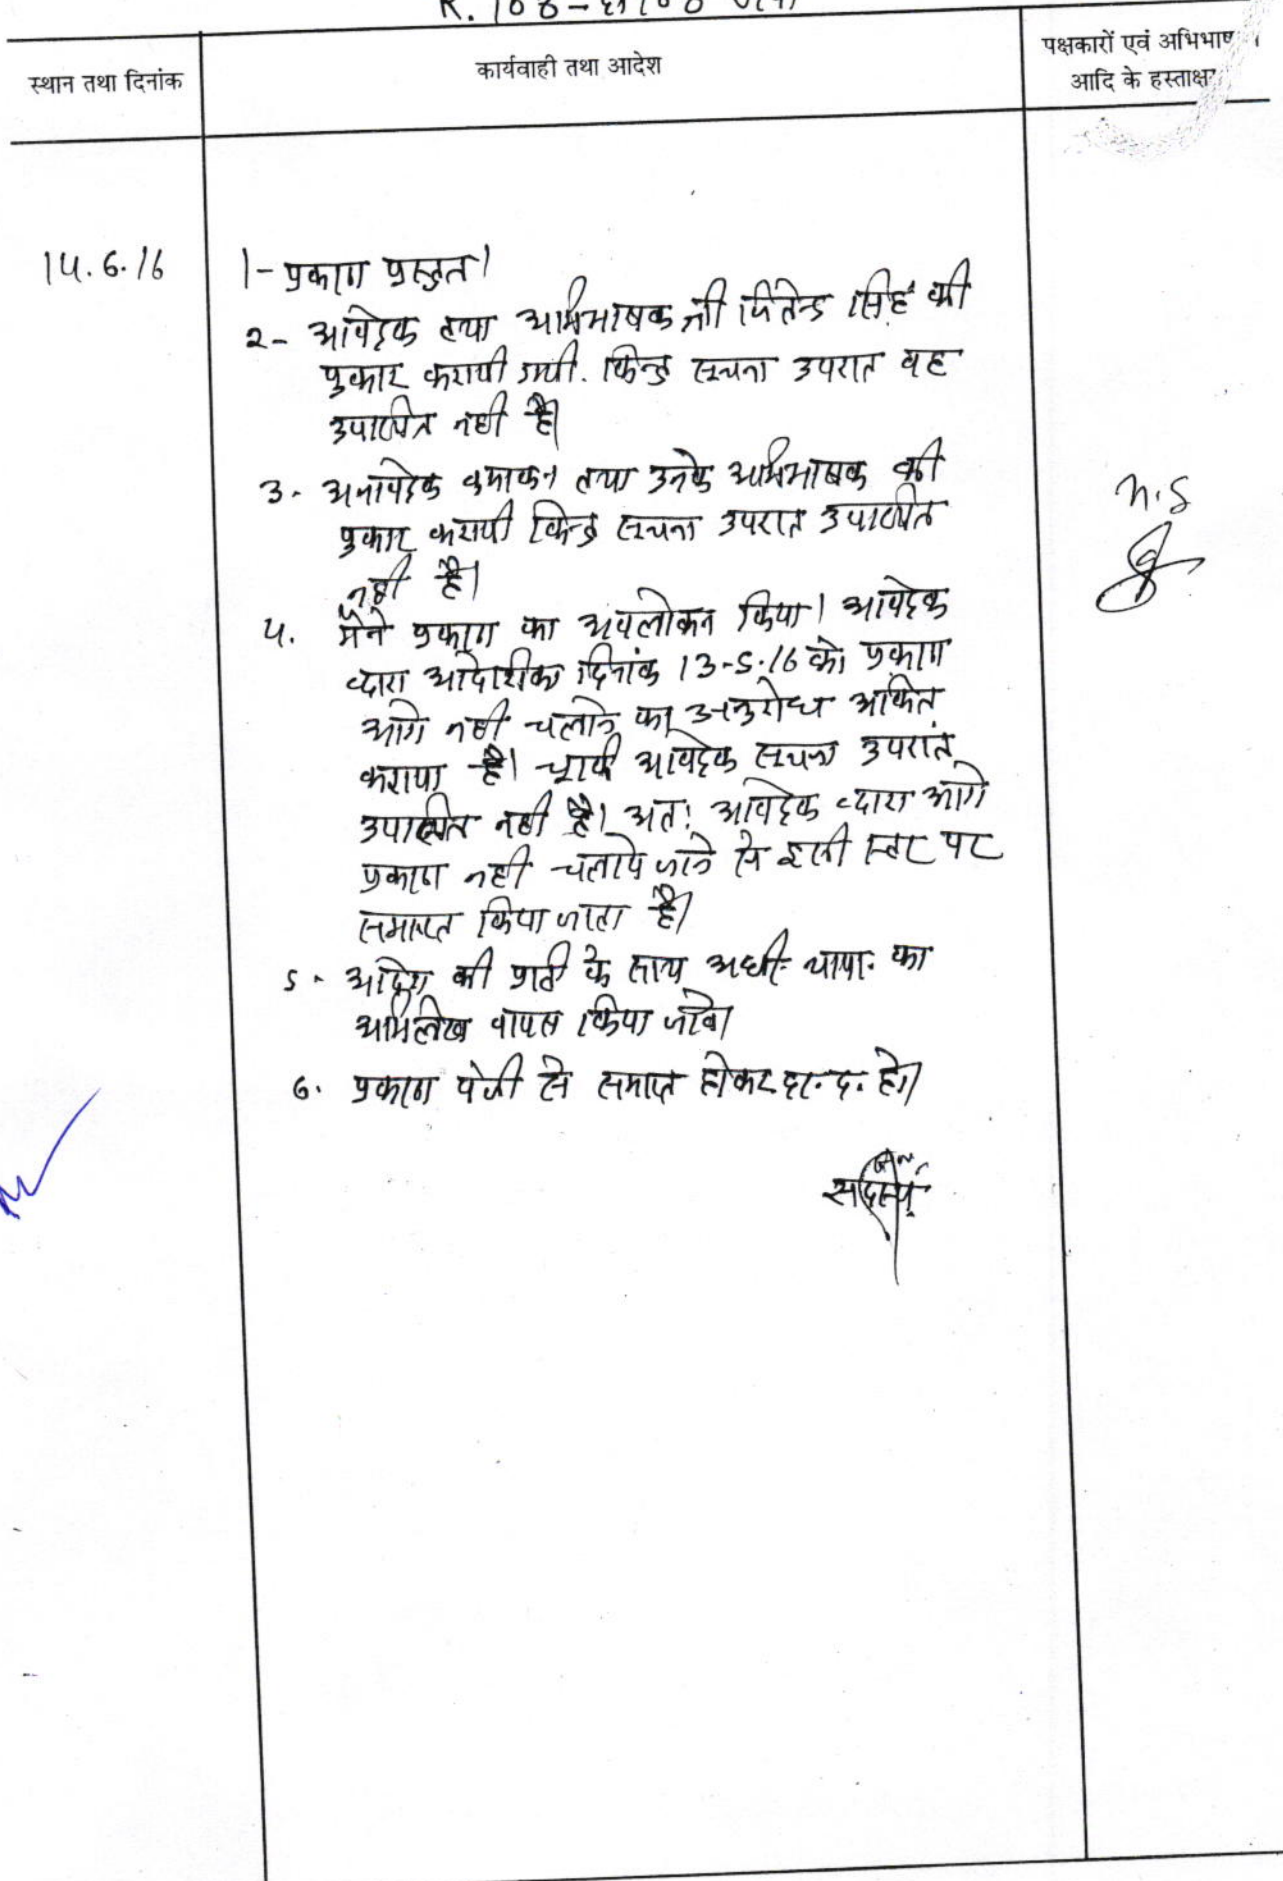 स्थान तथा दिनांक
कार्यवाही तथा आदेश
पक्षकारों एवं अभिभाष
आदि के हस्ताक्षर
14.6.16
1- प्रकरण प्रस्तुत।
2- आवेदक तथा अभिभाषक श्री जितेन्द्र सिंह की
पुकार करायी गयी. किन्तु सूचना उपरात वह
उपास्थित नही है।
3- अनावेदक तथा उनके अभिभाषक की
पुकार करायी किन्तु सूचना उपरात उपास्थित
नही है।
4. मैंने प्रकरण का अवलोकन किया। आवेदक
व्दारा आदेशिका दिनांक 13-5-16 को प्रकरण
आगे नही चलाने का अनुरोध अंकित
कराया है। चूकि आवेदक सूचना उपरांत
उपास्थित नही है। अत: आवेदक व्दारा आगे
प्रकरण नही चलाये जाने से इसी स्तर पर
समाप्त किया जाता है।
5- आदेश की प्रति के साथ अधी. न्याया. का
अभिलेख वापस किया जावे।
6. प्रकरण पंजी से समाप्त होकर दा. द. हो।
सदस्य
n.s